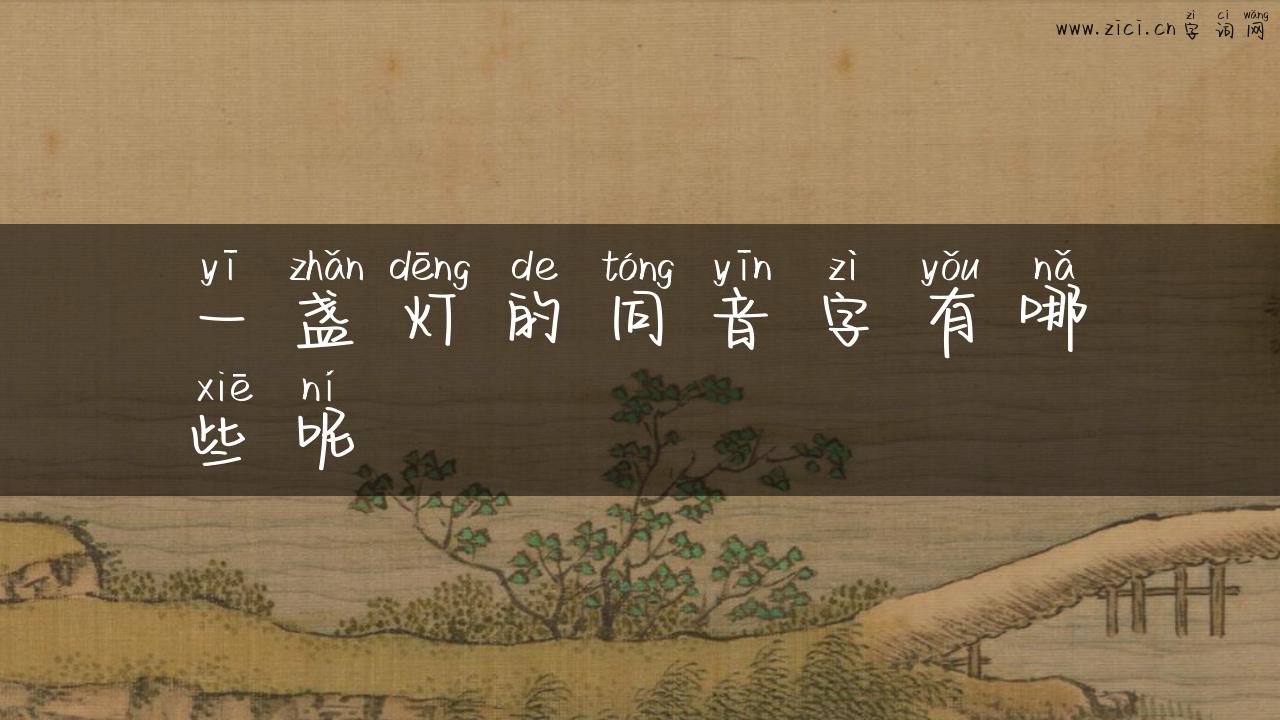 zì cí wǎng
www.zìcì.cn 字 词 网
yī zhǎn dēng de tóng yīn zì yǒu nǎ
一 盏 灯 的 同 音 字 有 哪
xiē ní
些 呢